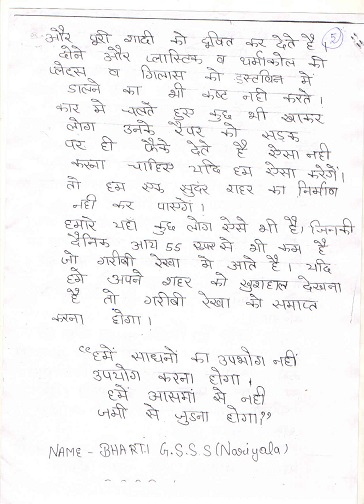 और पूरी शादी को द्रवित कर देते है। 5
दोने और प्लास्टिक व थर्माकोल की
प्लेट्स व गिलास को डस्टबिन में
डालने का भी कष्ट नही करते।
कार मे चलते हुए कुछ भी खाकर
लोग उनके रैपर को सड़क
पर ही फैंक देते है ऐसा नही
करना चाहिए यदि हम ऐसा करेगें।
तो हम एक सुन्दर शहर का निर्माण
नही कर पाएगें।
हमारे यहां कुछ लोग ऐसे भी है, जिनकी
दैनिक आय 55 रूपए से भी कम है
जो गरीबी रेखा मे आते है। यदि
हमे अपने शहर को खुशहाल देखना
है तो गरीबी रेखा को समाप्त
करना होगा।
"हमें साधनों का उपभोग नहीं
उपयोग करना होगा,
हमें आसमां से नही
जमी से जुडना होगा??"
NAME - BHARTI G.S.S.S (Nariyala)